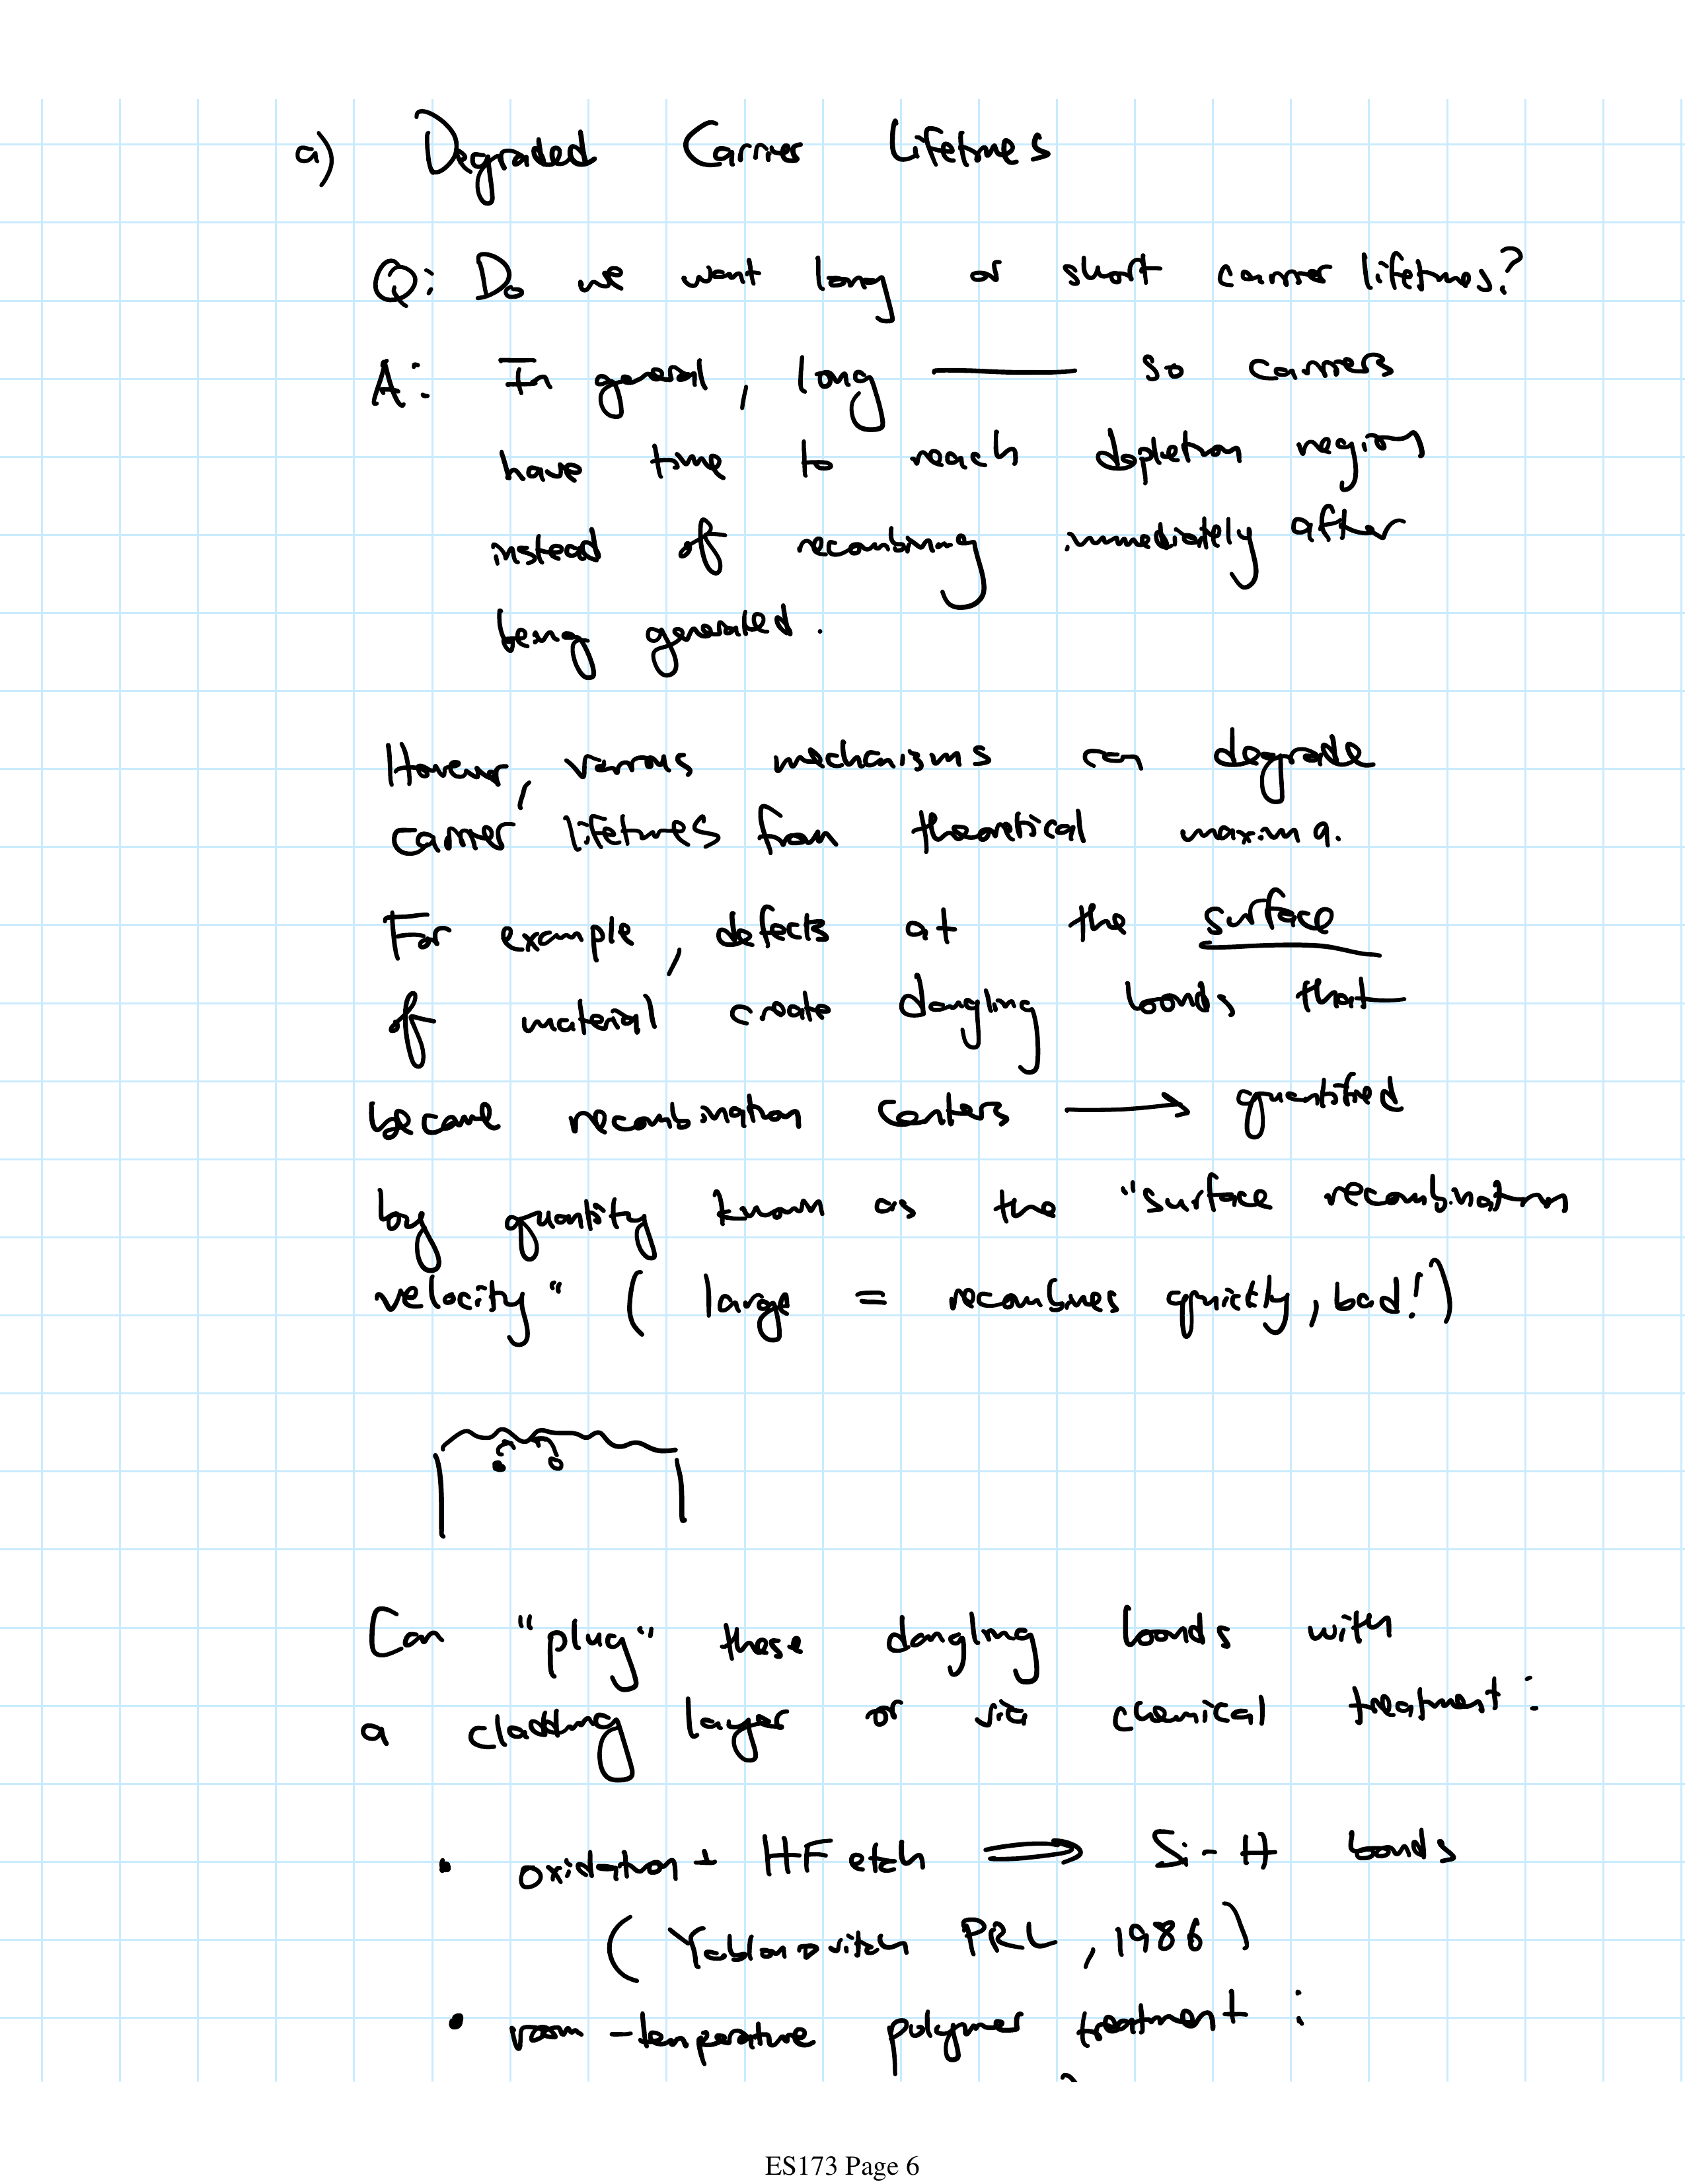 a) Degraded Carrier Lifetimes
Q: Do we want long or short carrier lifetimes?
A: In general, long — so carriers
have time to reach depletion region
instead of recombining immediately after
being generated.
However, various mechanisms can degrade
carrier lifetimes from theoretical maxima.
For example, defects at the surface
of material create dangling bonds that
become recombination centers → quantified
by quantity known as the "surface recombination
velocity" ( large = recombines quickly, bad!)
Can "plug" these dangling bonds with
a cladding layer or via chemical treatment:
• oxidation + HF etch ⟹ Si-H bonds
( Yablonovitch PRL, 1986 )
• room-temperature polymer treatment :
ES173 Page 6